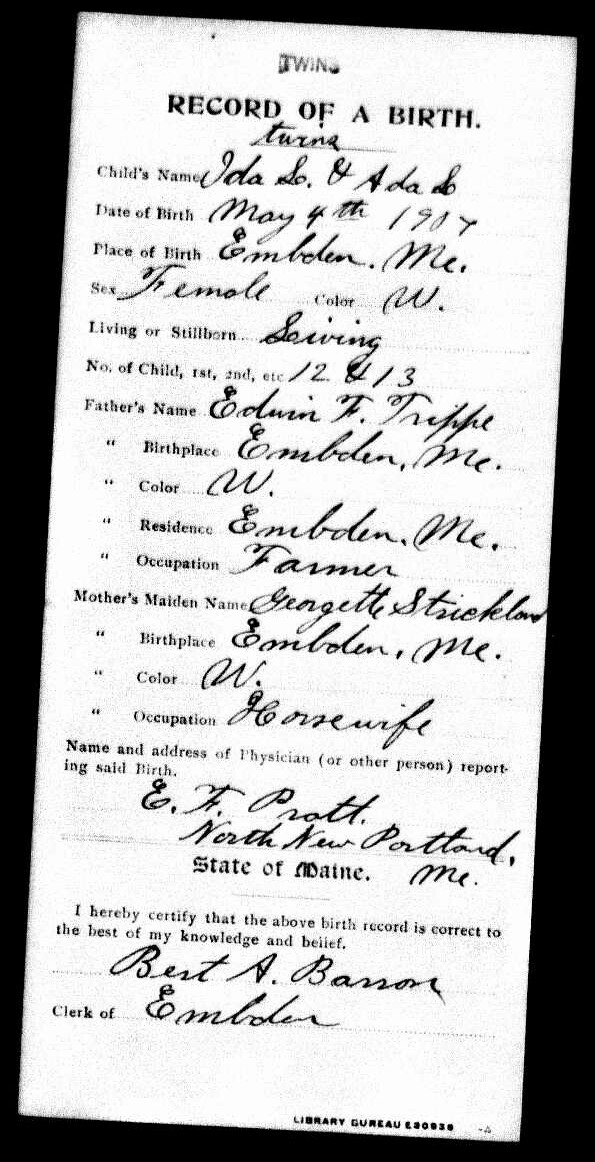 TWINS
RECORD OF A BIRTH.
twins
Child's Name Ida L. & Ada L
Date of Birth May 4th 1907
Place of Birth Embden. Me.
Sex Female Color W.
Living or Stillborn Living
No. of Child, 1st, 2nd, etc 12 & 13
Father's Name Edwin F. Trippe
" Birthplace Embden, Me.
" Color W.
" Residence Embden. Me.
" Occupation Farmer
Mother's Maiden Name Georgette Strickland
" Birthplace Embden, Me.
" Color W.
" Occupation Housewife
Name and address of Physician (or other person) report-
ing said Birth.
E. F. Pratt.
North New Portland,
State of Maine. Me.
I hereby certify that the above birth record is correct to
the best of my knowledge and belief.
Bert A. Barron
Clerk of Embden
LIBRARY BUREAU E30938